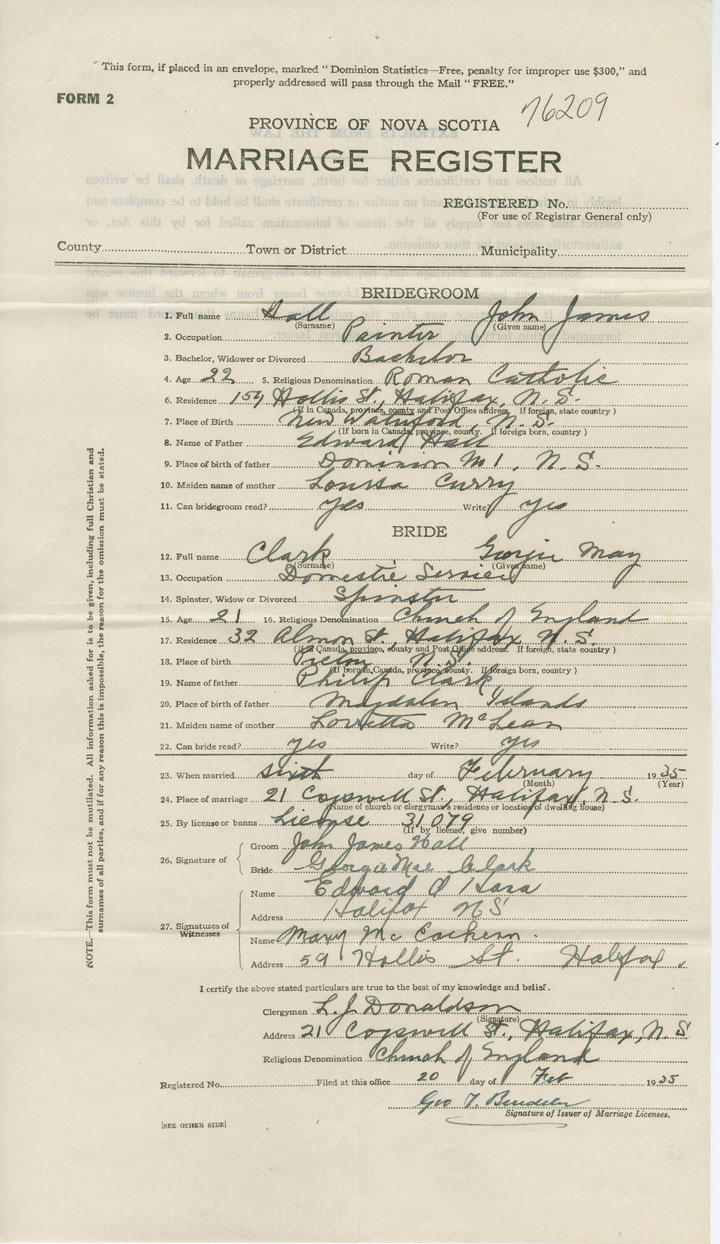 "This form, if placed in an envelope, marked "Dominion Statistics—Free, penalty for improper use $300," and
properly addressed will pass through the Mail "FREE."
FORM 2
76209
PROVINCE OF NOVA SCOTIA
MARRIAGE REGISTER
REGISTERED No.
(For use of Registrar General only)
County Town or District Municipality
BRIDEGROOM
1. Full name Hall John James
(Surname) (Given name)
2. Occupation Painter
3. Bachelor, Widower or Divorced Bachelor
4. Age 22 5. Religious Denomination Roman Catholic
6. Residence Hollis St., Halifax, N.S.
(If in Canada, province, county and Post Office address. If foreign, state country)
7. Place of Birth New Waterford, N.S.
(If born in Canada, province, county. If foreign born, country)
8. Name of Father Edward Hall
9. Place of birth of father Dominion N.S.
10. Maiden name of mother Curry
11. Can bridegroom read? yes Write? yes
BRIDE
12. Full name Clark May
(Surname) (Given name)
13. Occupation Domestic Service
14. Spinster, Widow or Divorced Spinster
15. Age 21 16. Religious Denomination Church of England
17. Residence 32 Almon St., Halifax N.S.
(If in Canada, province, county and Post Office address. If foreign, state country)
18. Place of birth Pictou N.S.
(If born in Canada, province, county. If foreign born, country)
19. Name of father Philip Clark
20. Place of birth of father Magdalen Islands
21. Maiden name of mother Lorretta McLean
22. Can bride read? yes Write? yes
23. When married sixth day of February 1935
(Month) (Year)
24. Place of marriage 21 Cogswell St., Halifax, N.S.
(Name of church or clergyman's residence or location of dwelling house)
25. By license or banns License 31079
(If by license, give number)
26. Signature of
Groom John James Hall
Bride Georgie Mae Clark
27. Signatures of Witnesses
Name Edward O'Hara
Address Halifax NS
Name Mary McEachern.
Address 59 Hollis St. Halifax.
I certify the above stated particulars are true to the best of my knowledge and belief.
Clergyman L. J. Donaldson
(Signature)
Address 21 Cogswell St., Halifax, N.S
Religious Denomination Church of England
Registered No. Filed at this office 20 day of Feb 1935
Geo T.
Signature of Issuer of Marriage Licenses.
[SEE OTHER SIDE]
NOTE.—This form must not be mutilated. All information asked for is to be given, including full Christian and
surnames of all parties, and if for any reason this is impossible, the reason for the omission must be stated.